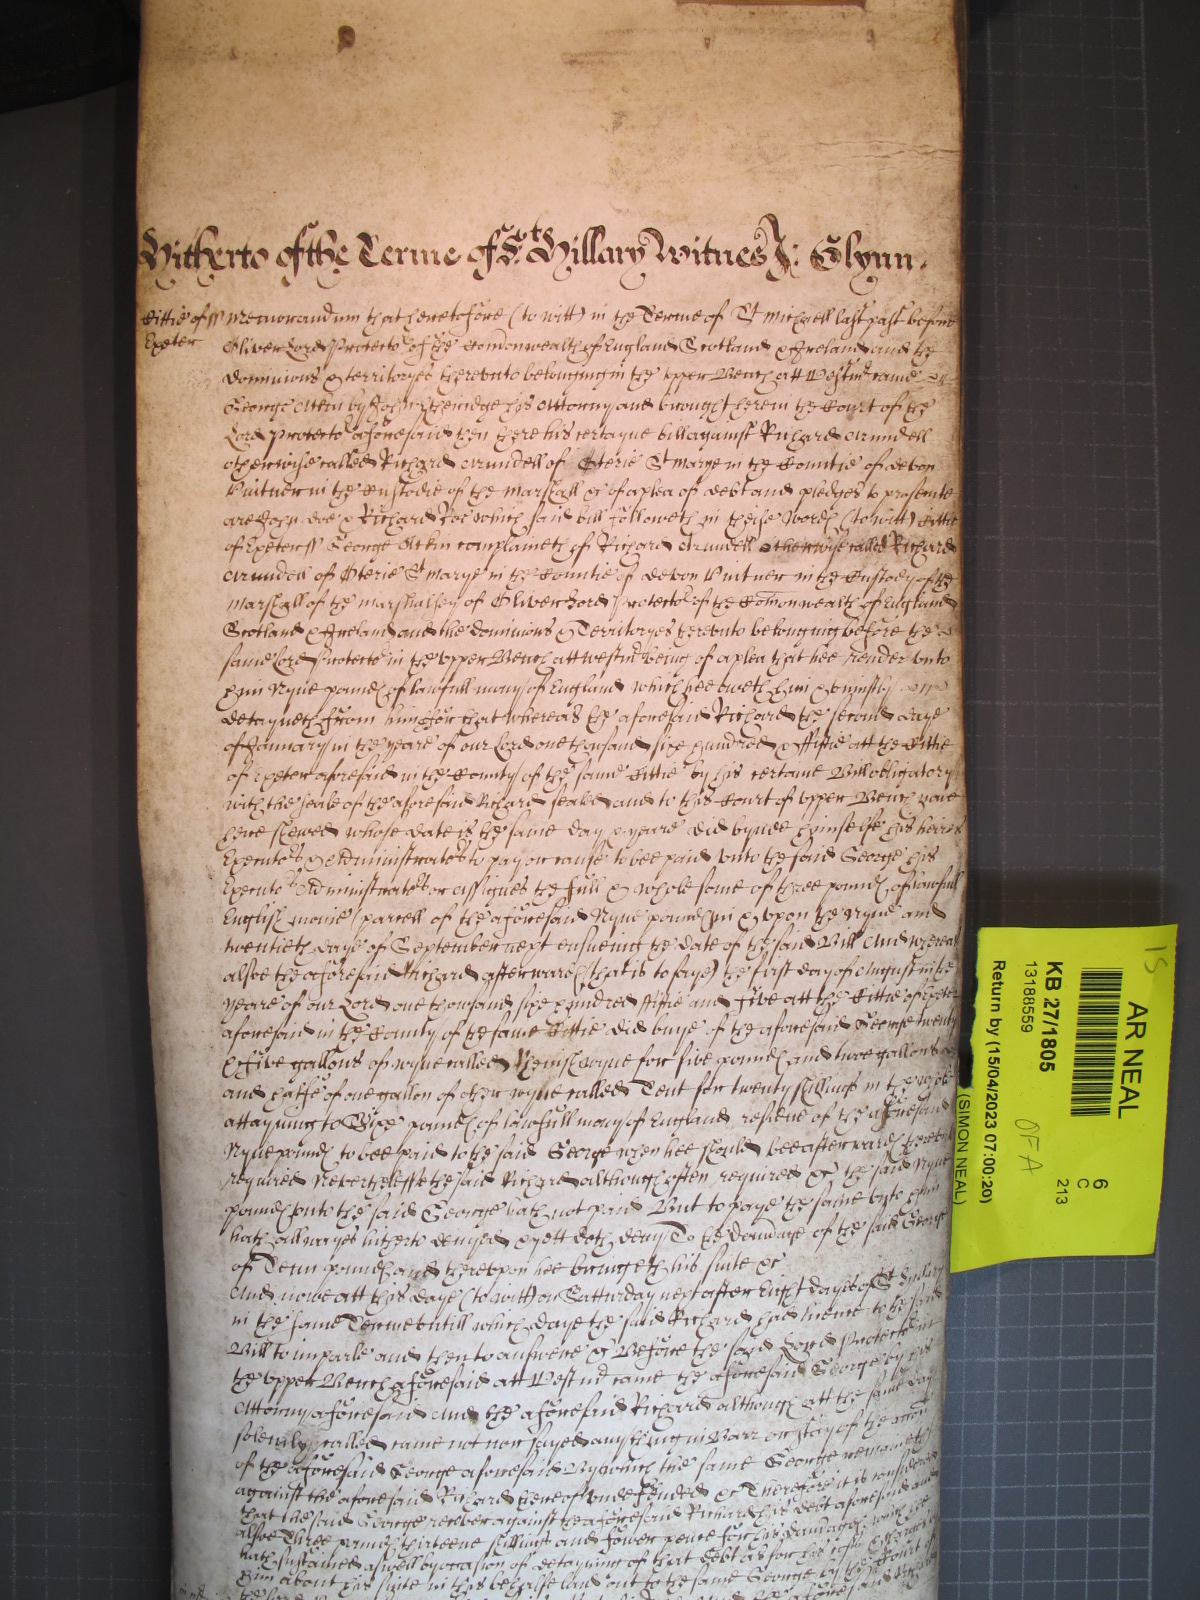 Hitherto of the Terme of St Hillary Witnes J: Glynn.
Cittie of ss Memorandum that heretofore (to witt) in the Terme of St Michaell last past before
Exeter Oliver Lord Protector of the Comonwealth of England Scotland & Ireland and the
dominions & territoryes thereunto belonging in the upper Bench att Westmr came
George Atkin by his Attorny and brought here in the Court of the
Lord Protector aforesaid then there his certayne bill against Richard Arundell
otherwise called Richard Arundell of Oterie St Marye in the Countie of devon
Vintner in the Custodie of the Marshall &c of a plea of debt and pledges to prosecute
are John doe & Richard Roe which said bill followeth in theise Words (to witt) Cittie
of Exeter ss George Atkin complaineth of Richard Arundell otherwise called Richard
Arundell of Oterie St Marye in the Countie of devon Vintner in the Custody of the
Marshall of the Marshalsey of Oliver Lord Protector of the Comonwealth of England
Scotland & Ireland and the dominions & Territoryes thereunto belonging before the
same Lord Protector in the upper Bench att westmr being of a plea that hee render unto
him Nyne pounds of lawfull mony of England which hee oweth him & uniustly
detayneth From him For that whereas the aforesaid Richard the second daye
of January in the yeare of our Lord one thousand sixe hundred & Fiftie att the Cittie
of Exeter aforesaid in the County of the same Cittie by his certaine Bill obligatory
with the seale of the aforesaid Richard sealed and to this Court of upper Bench nowe
here shewed whose date is the same day & yeare did bynde himselfe his heires
Executors & Administrators to pay or cause to bee paid unto the said George his
Executors Administrators or assignes the full & whole some of three pounds of lawfull
English monie parcell of the aforesaid Nyne pounds in & upon the Nyne and
twentieth daye of September next ensueing the date of the said Bill And whereas
alsoe the aforesaid Richard afterwards (that is to saye) the first day of August in the
yeare of our Lord one thousand sixe hundred Fiftie and Five att the Cittie of Exeter
aforesaid in the County of the same Cittie did buye of the aforesaid George twenty
& five gallons of wyne called Renish wyne for five pounds and twoe gallons
and halfe of one gallon of other wyne called Tent for twenty shillings in the whole
attayning to Sixe pounds of lawfull mony of England residue of the aforesaid
Nyne pounds to bee paid to the said George when hee should bee afterwards thereto
required Neverthelesse the said Richard although often required &c the said Nyne
pounds unto the said George hath not paid But to paye the same unto him
hath allwayes hitherto denyed & yett doth deny To the damage of the said George
of Tenn pounds and thereupon hee bringeth his suite &c
And nowe att this daye (to witt) on Satturday next after Eight dayes of St Hyllary
in this same Terme untill which daye the said Richard had licence to the said
Bill to imparle and then to answere &c Before the said Lord Protector in
the upper Bench aforesaid att Westmr came the aforesaid George by his
Attorny aforesaid And the aforesaid Richard although att the same day
solemly called came not nor sayed anything in Barr or stay of the
of the aforesaid George aforesaid By which the same George remaineth
against the aforesaid Richard thereof undefended &c Therefore it is considered
that the said George recover against the aforesaid Richard his debt aforesaid and
alsoe Three pounds thirteene shillings and fower pence for his damages which hee
hath sustained aswell by occasion of detayning of that debt as for his Costs & Charges by
him about his suite in this behalfe laid out to the same George by the Court of
AR NEAL
KB 27/1805
13188559
Return by (15/04/2023 07:00:20)
(SIMON NEAL)
6
C
213
OFA
15